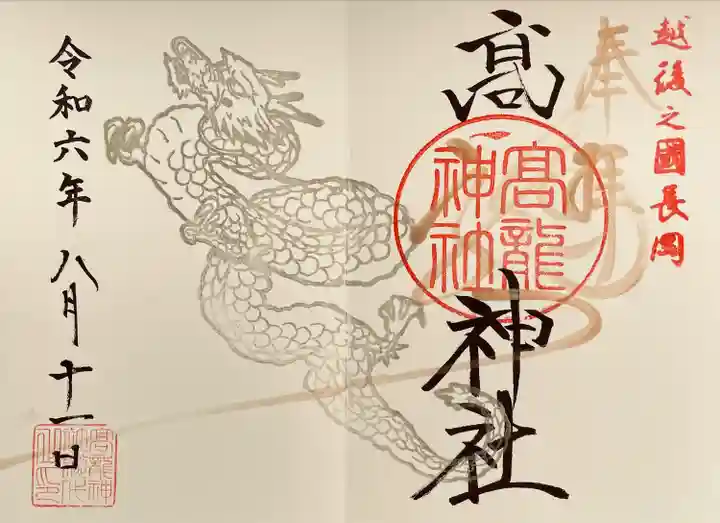 越後之國長岡
奉拝
髙龍神社
髙龍
神社
令和六年八月十一日